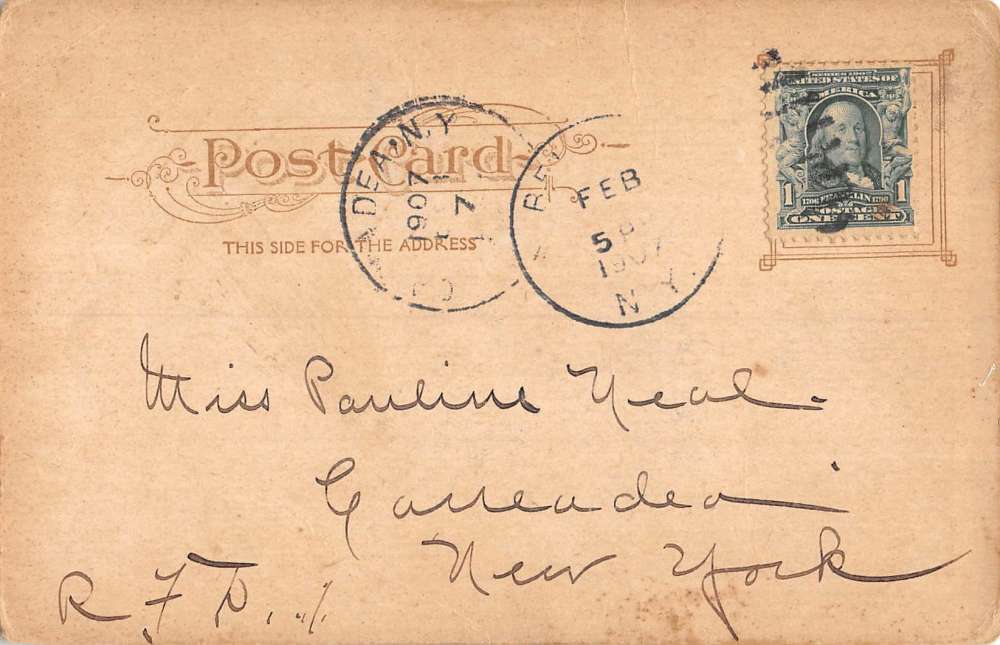 Post Card
THIS SIDE FOR THE ADDRESS
ADEA N.Y.
1907
7
FEB
5 P
1907
N.Y.
SERIES 1902
UNITED STATES OF
AMERICA
1 1706 FRANKLIN 1790 1
POSTAGE
ONE CENT
Miss Pauline Neal.
Caneadea
New York
R F D. 1